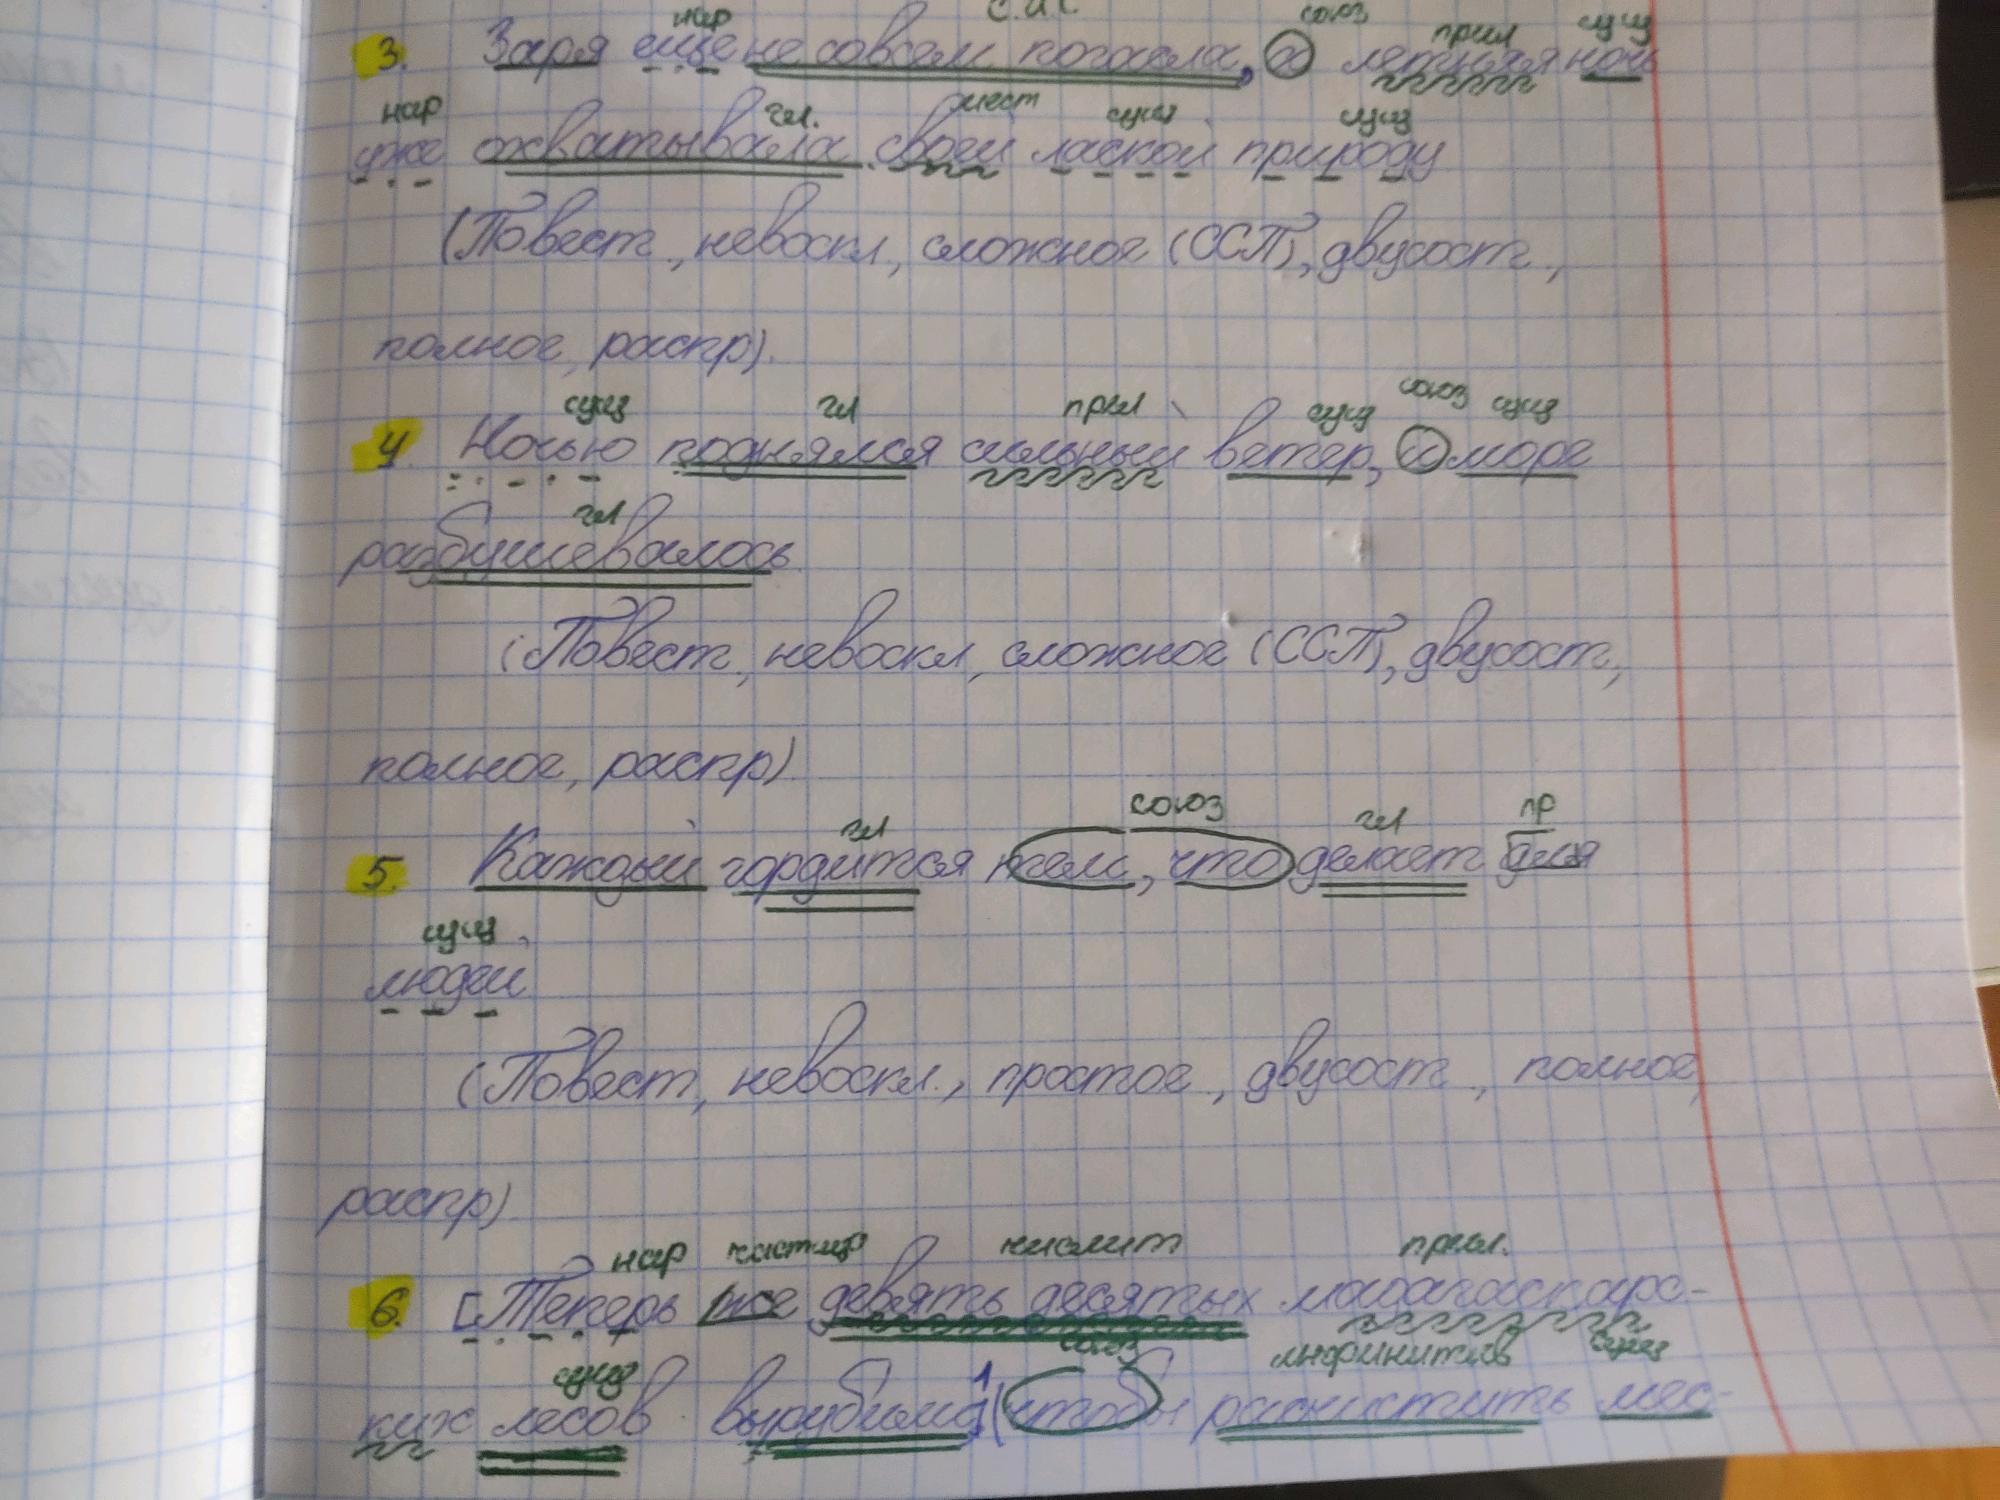 С.И.С
нар союз прил сущ
3. Заря еще не совсем погасла, а летняя ночь
нар гл. мест сущ. сущ
уже охватывала своей лаской природу
(Повест., невоскл., сложное (ССП), двусост.,
полное, распр).
сущ гл прил сущ союз сущ
4. Ночью поднялся сильный ветер, и море
гл
разбушевалось.
(Повест., невоскл, сложное (ССП), двусост,
полное, распр)
гл союз гл пр
5. Каждый гордится тем, что делает для
сущ
людей
(Повест, невоскл., простое, двусост., полное,
распр)
нар частица числит прил.
6. [Теперь же девять десятых мадагаскарс-
сущ союз инфинитив сущ
ких лесов вырублено, (чтобы расчистить мес-